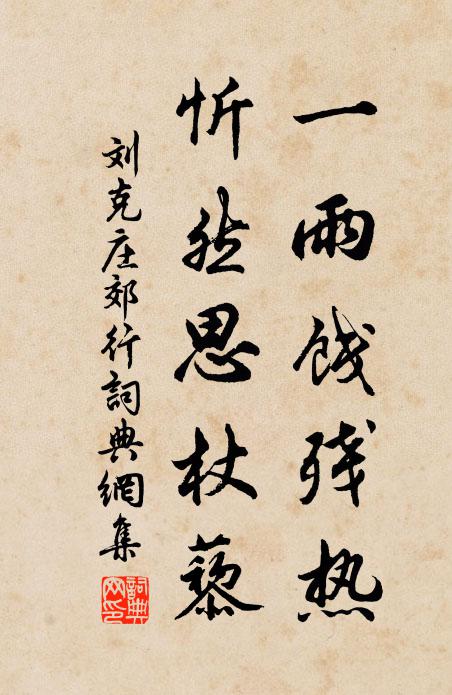 一雨饯残热
忻然思杖藜
刘克庄郊行詞典網集
詞典網印